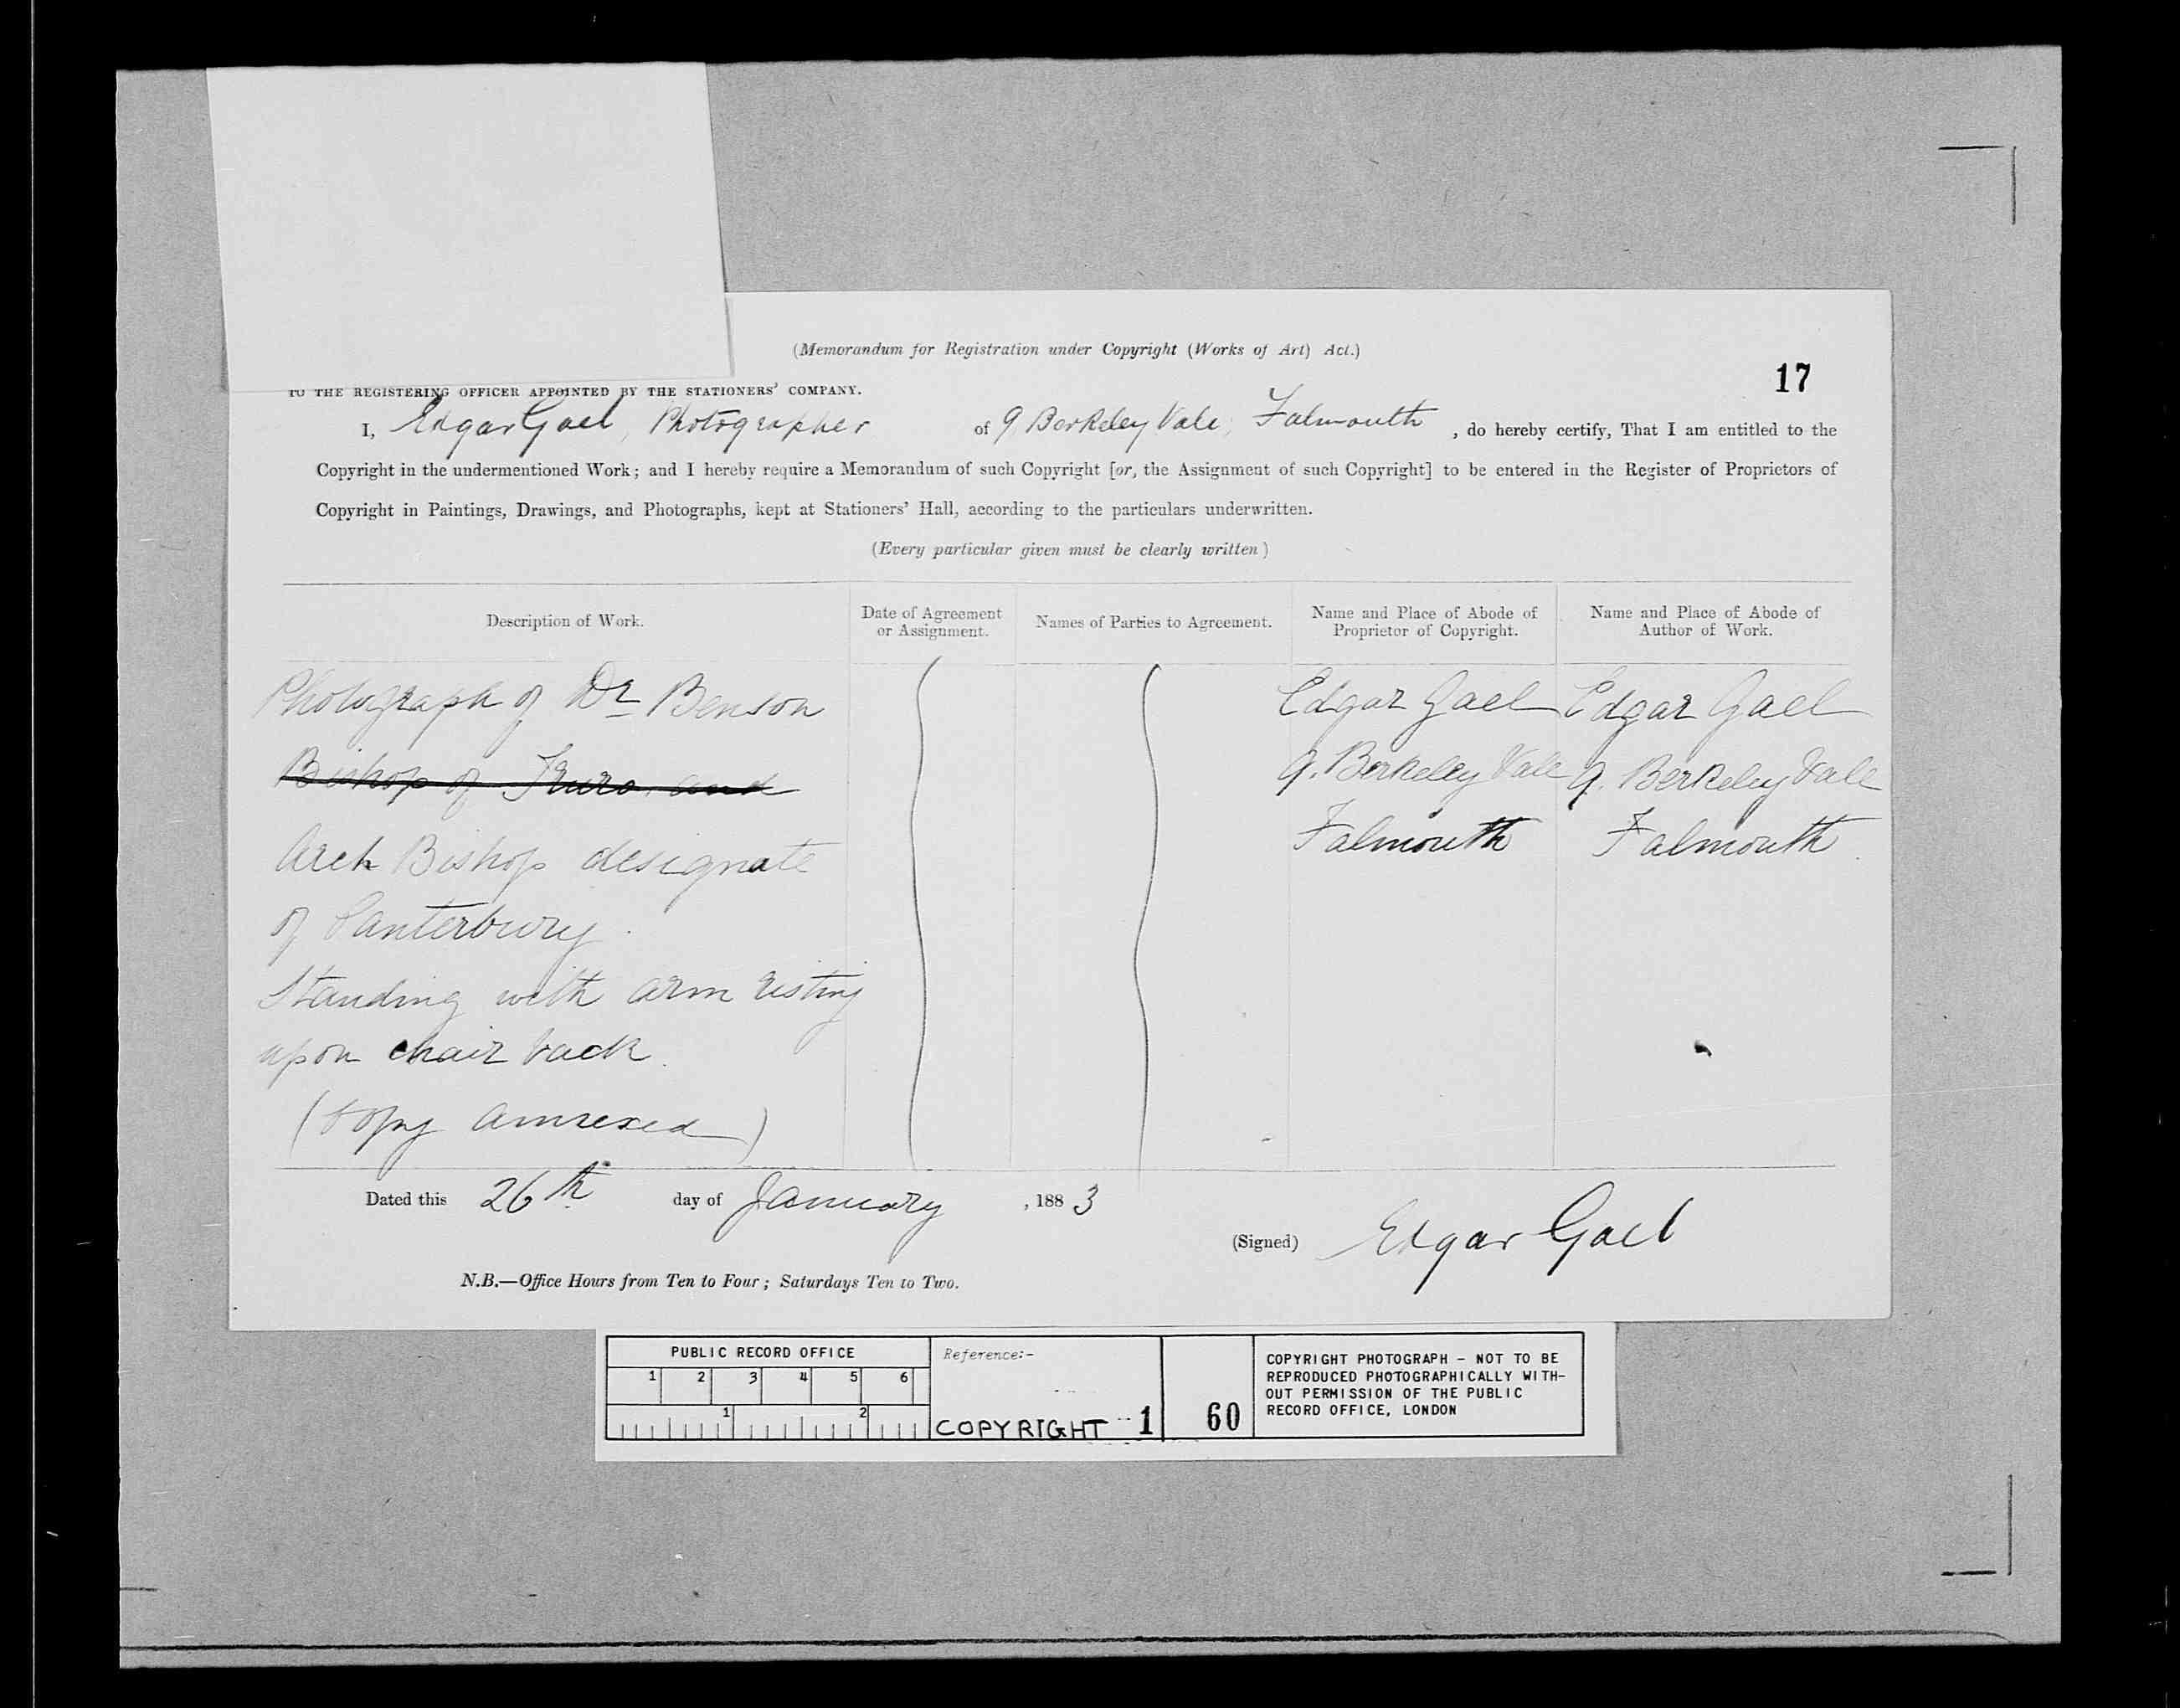 (Memorandum for Registration under Copyright (Works of Art) Act.)
17
TO THE REGISTERING OFFICER APPOINTED BY THE STATIONERS' COMPANY.
I, Edgar Gael, Photographer of 9 Berkeley Vale, Falmouth, do hereby certify, That I am entitled to the
Copyright in the undermentioned Work; and I hereby require a Memorandum of such Copyright [or, the Assignment of such Copyright] to be entered in the Register of Proprietors of
Copyright in Paintings, Drawings, and Photographs, kept at Stationers' Hall, according to the particulars underwritten.
(Every particular given must be clearly written)
Description of Work.
Date of Agreement
or Assignment.
Names of Parties to Agreement.
Name and Place of Abode of
Proprietor of Copyright.
Name and Place of Abode of
Author of Work.
Photograph of Dr Benson
Bishop of Truro, and
Arch Bishop designate
of Canterbury.
Standing with arm resting
upon chair back.
(Copy annexed)
Edgar Gael
9. Berkeley Vale
Falmouth
Edgar Gael
9. Berkeley Vale
Falmouth
Dated this 26th day of January, 1883
(Signed) Edgar Gael
N.B.—Office Hours from Ten to Four; Saturdays Ten to Two.
PUBLIC RECORD OFFICE
1 2 3 4 5 6
1 2
Reference:-
COPYRIGHT 1
60
COPYRIGHT PHOTOGRAPH - NOT TO BE
REPRODUCED PHOTOGRAPHICALLY WITH-
OUT PERMISSION OF THE PUBLIC
RECORD OFFICE, LONDON